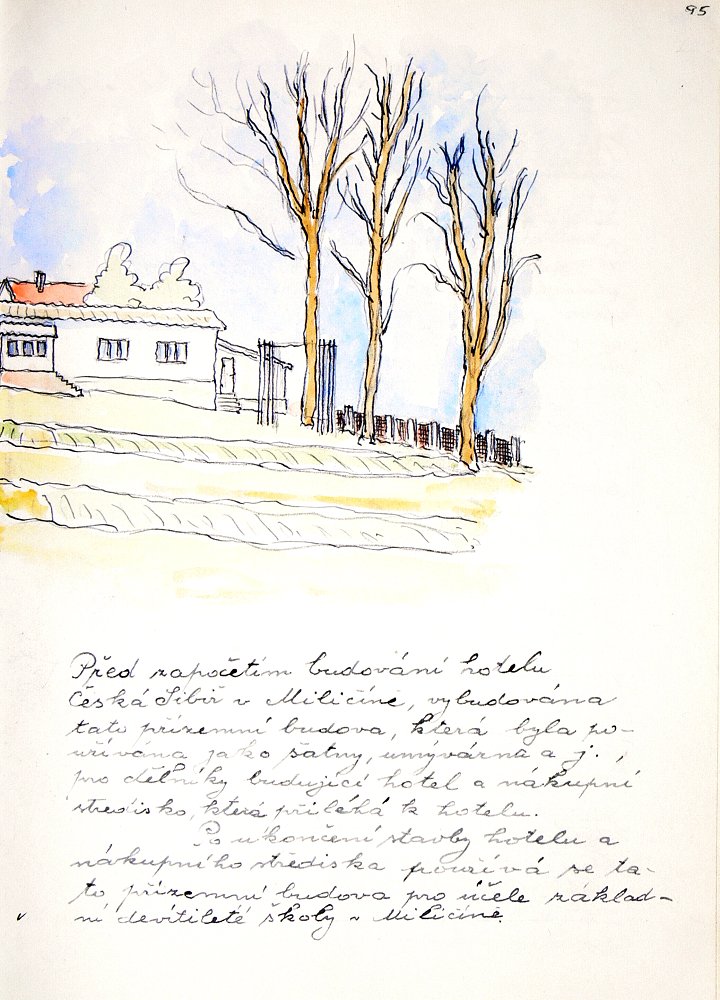 95
Před započetím budování hotelu
Česká Sibiř v Miličíně, vybudována
tato přízemní budova, která byla po-
užívána jako šatny, umývárna a j.,
pro dělníky budující hotel a nákupní
středisko, která přiléhá k hotelu.
Po ukončení stavby hotelu a
nákupního střediska používá se ta-
to přízemní budova pro účele základ-
ní devítileté školy v Miličíně.